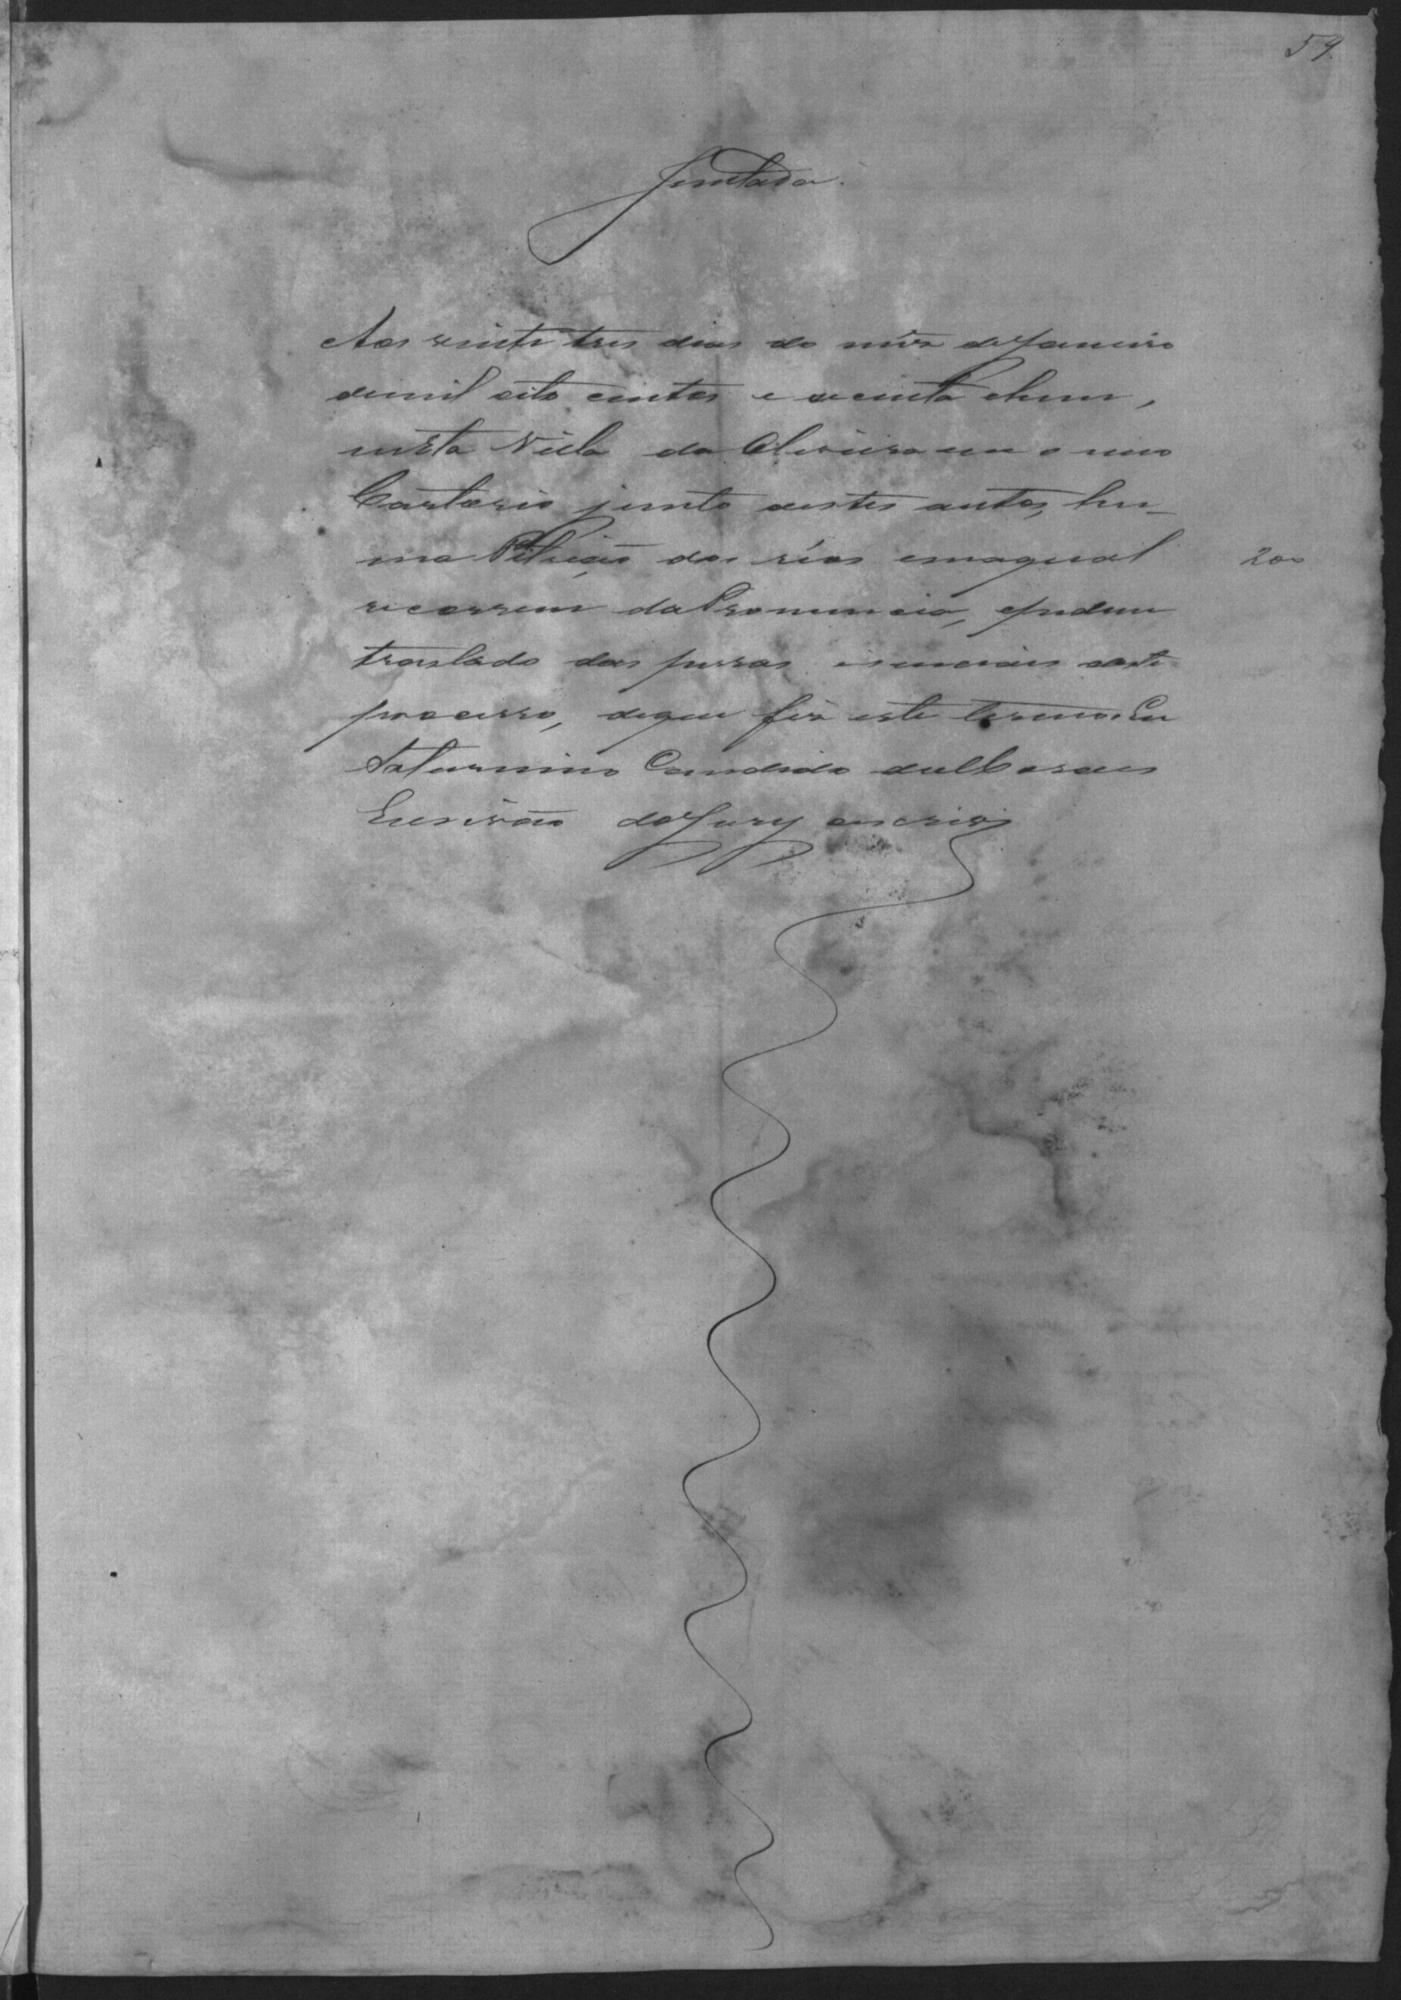 59.
Juntada.
Aos vinte tres dias do mês de Janeiro
de mil oito centos e secenta e hum,
nesta Villa da Oliveira em o meo
Cartorio junto a estes autos, hu-
ma Petição dos réos em a qual
200
recorrem da Pronuncia, e pedem
traslado das pessas deste
processo, de que fiz este termo. Eu
Saturnino Candido de Moraes
Escrivão do Jury o escrivi